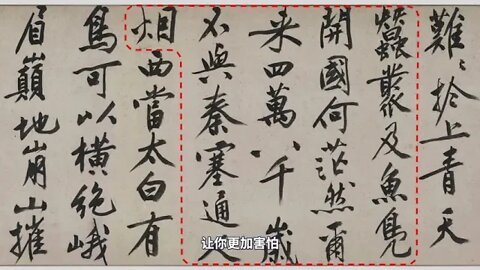 難〻於上青天
蠶叢及魚鳧
開國何茫然爾
来四萬八千歲
不與秦塞通人
烟西當太白有
鳥可以橫絕峨
眉巔地崩山摧
让你更加害怕